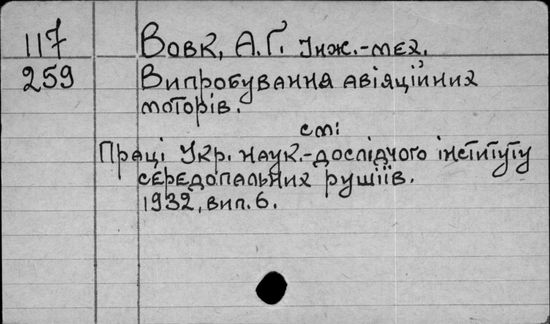 117 Вовк, А.Ґ. Інж.-мех.
259 Випробування авіяційних
моторів.
см:
Праці Укр. наук.-дослідчого інституту
середопальних рушіїв.
1932, вип. 6.